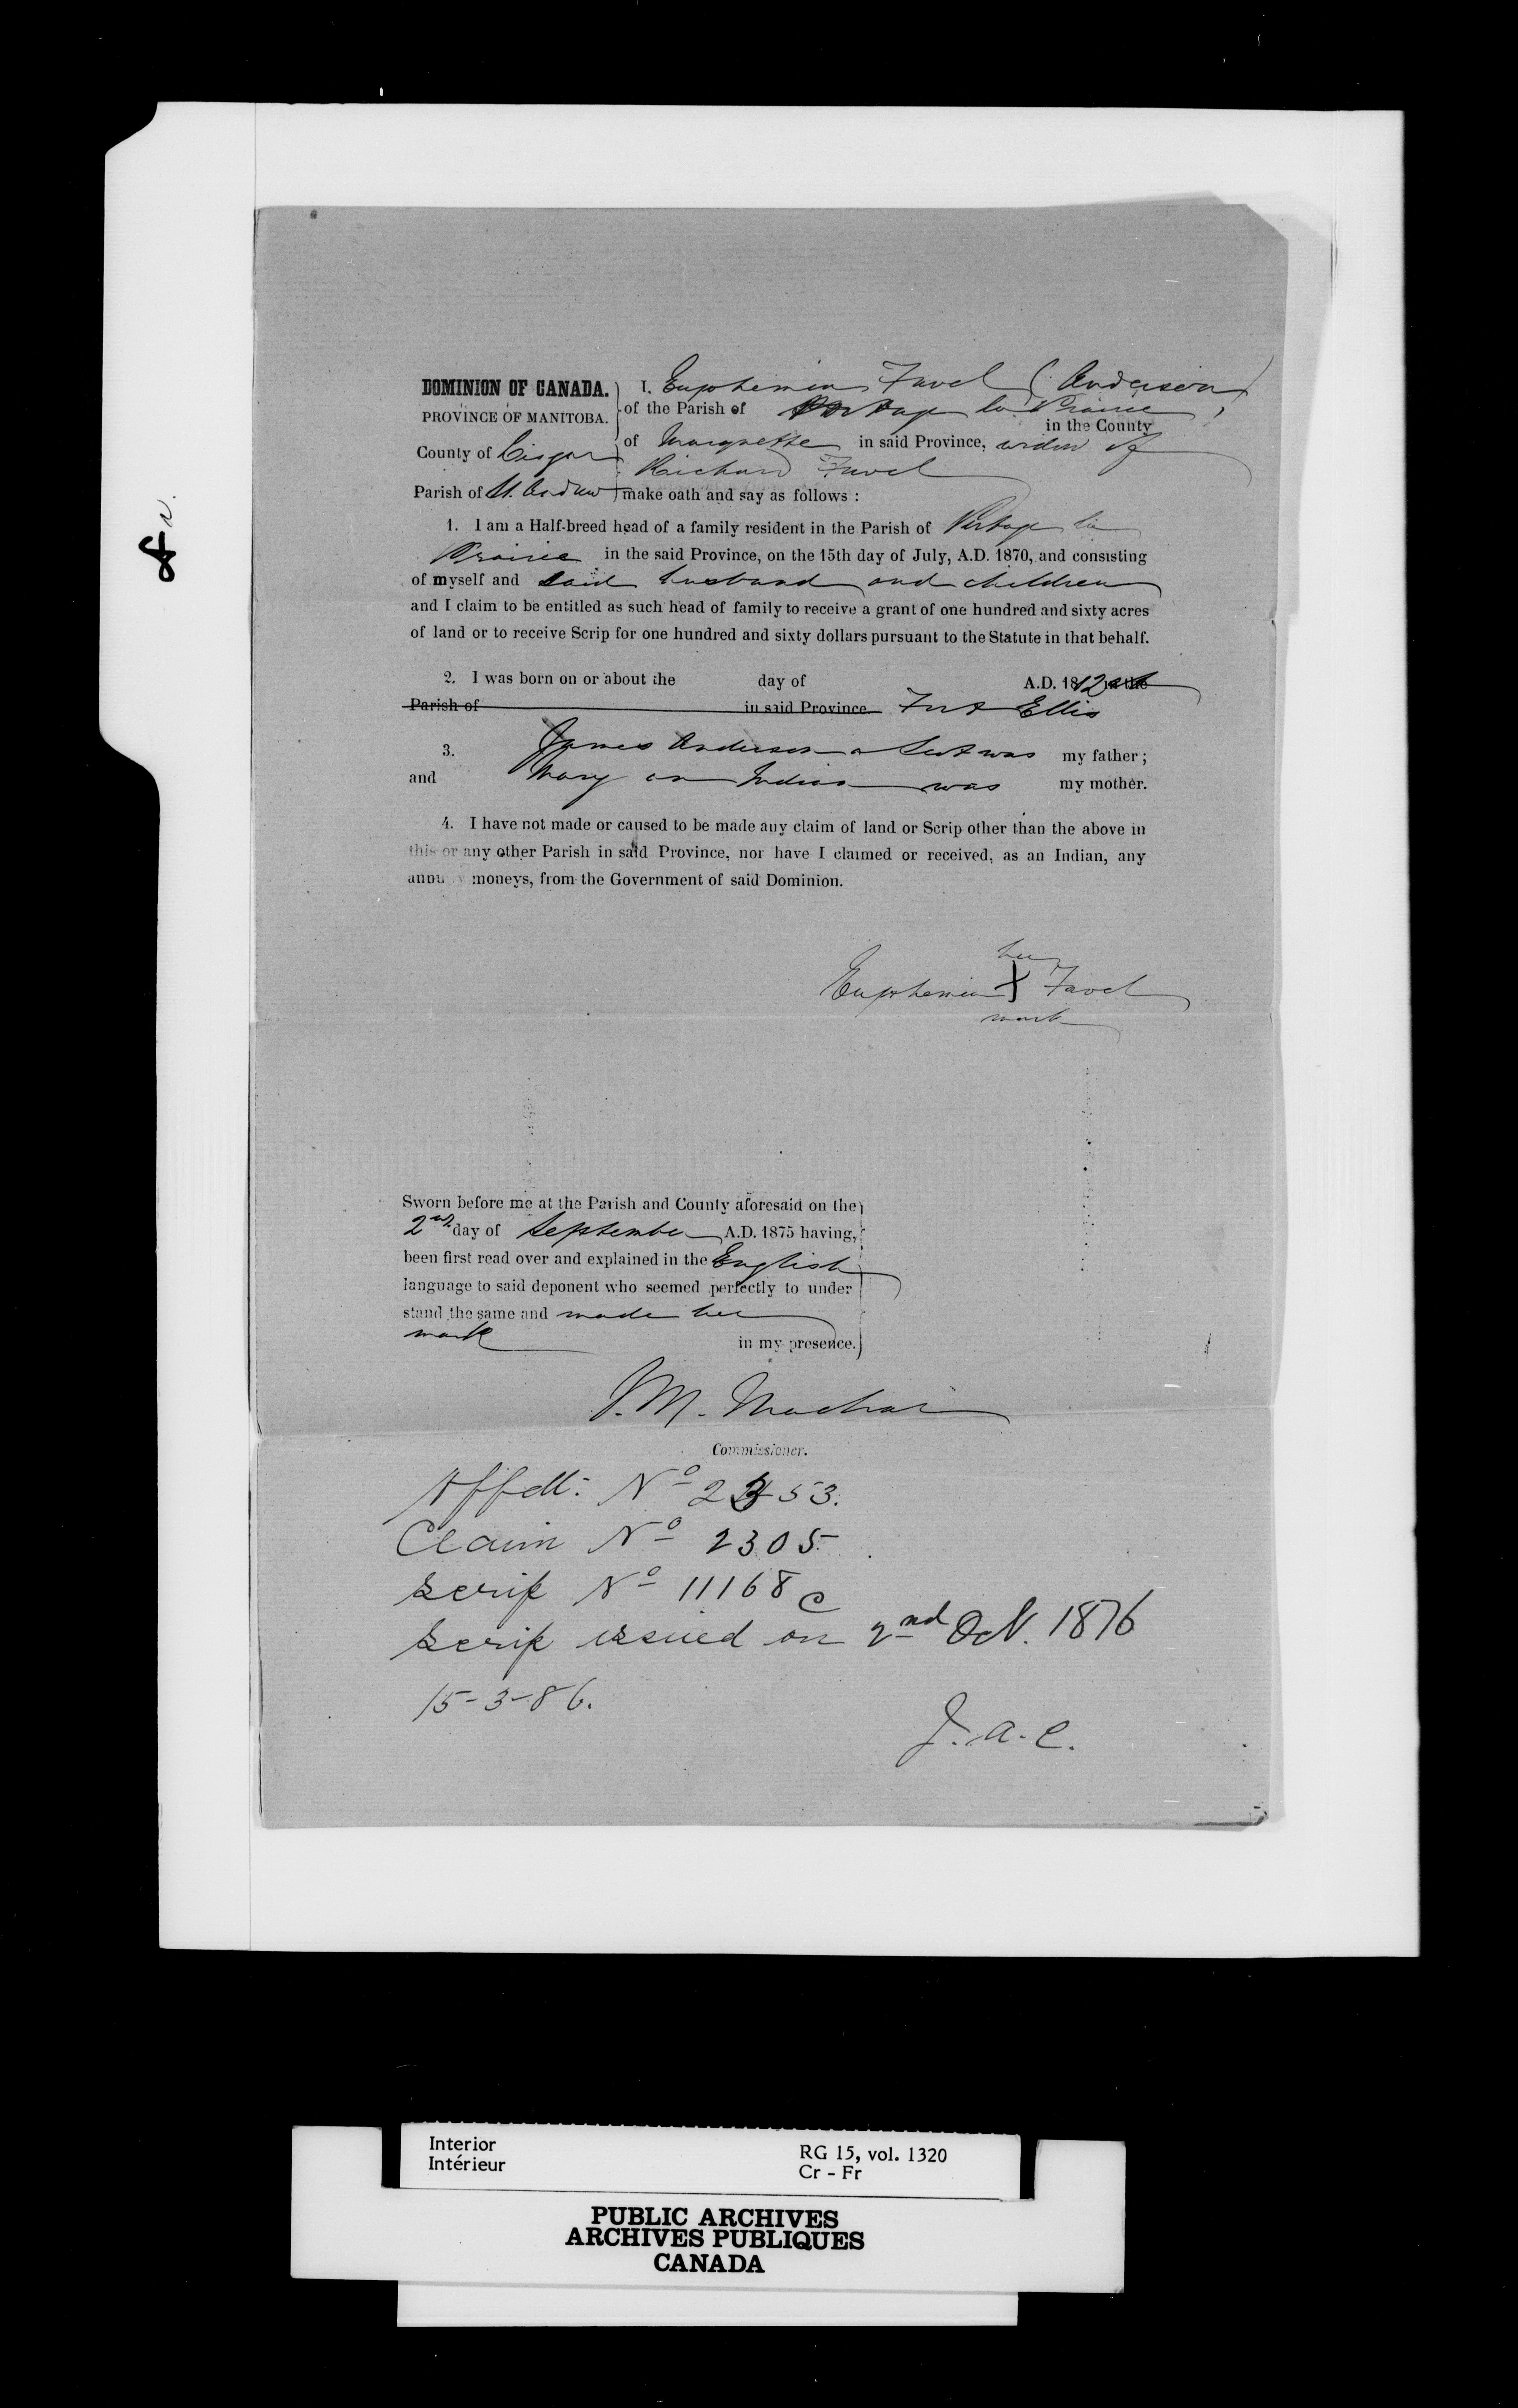 DOMINION OF CANADA. I, Euphemia Favel (Anderson)
PROVINCE OF MANITOBA. of the Parish of Portage la Prairie,
in the County
of Marquette in said Province, widow of
County of Lisgar
Richard Favel
Parish of St. Andrew make oath and say as follows :
1. I am a Half-breed head of a family resident in the Parish of Portage la
Prairie in the said Province, on the 15th day of July, A.D. 1870, and consisting
of myself and said husband and children
and I claim to be entitled as such head of family to receive a grant of one hundred and sixty acres
of land or to receive Scrip for one hundred and sixty dollars pursuant to the Statute in that behalf.
2. I was born on or about the day of A.D. 1812 at in the
Parish of in said Province Fort Ellis
3. James Anderson a Scot was my father ;
and Mary an Indian was my mother.
4. I have not made or caused to be made any claim of land or Scrip other than the above in
this or any other Parish in said Province, nor have I claimed or received, as an Indian, any
annu y moneys, from the Government of said Dominion.
her
Euphemia X Favel
mark
Sworn before me at the Parish and County aforesaid on the
2nd day of September A.D. 1875 having,
been first read over and explained in the English
language to said deponent who seemed perfectly to under
stand the same and made her
mark in my presence.
J. M. Machar
Commissioner.
Affdt: No 2353.
Claim No 2305.
Scrip No 11168 C
Scrip issued on 2nd Oct. 1876
15-3-86.
J. A. C.
Interior RG 15, vol. 1320
Intérieur Cr - Fr
PUBLIC ARCHIVES
ARCHIVES PUBLIQUES
CANADA